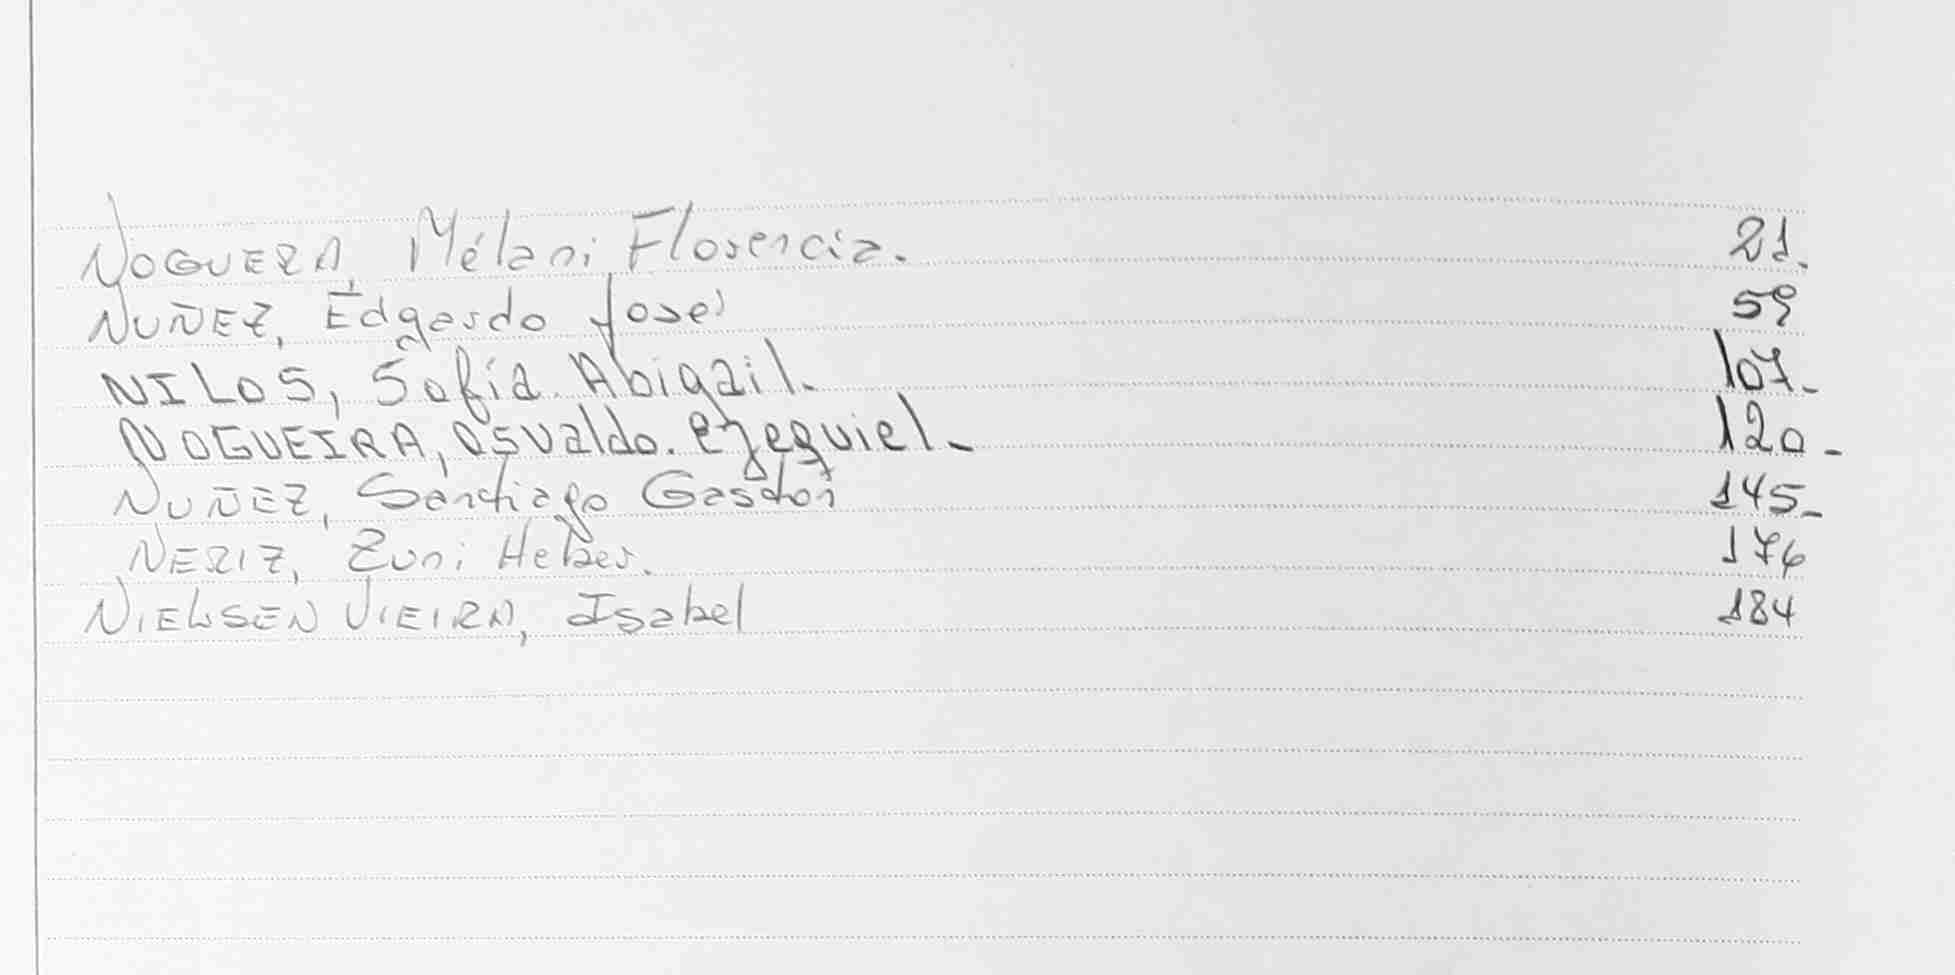 NOGUERA, Mélani Florencia. 21.
NUÑEZ, Edgardo José 59
NILOS, Sofía Abigail. 107.
NOGUEIRA, Osvaldo. Ezequiel. 120.
NUÑEZ, Santiago Gastón 145.
NERIZ, Zuni Heber. 176
NIELSEN VIEIRA, Isabel 184